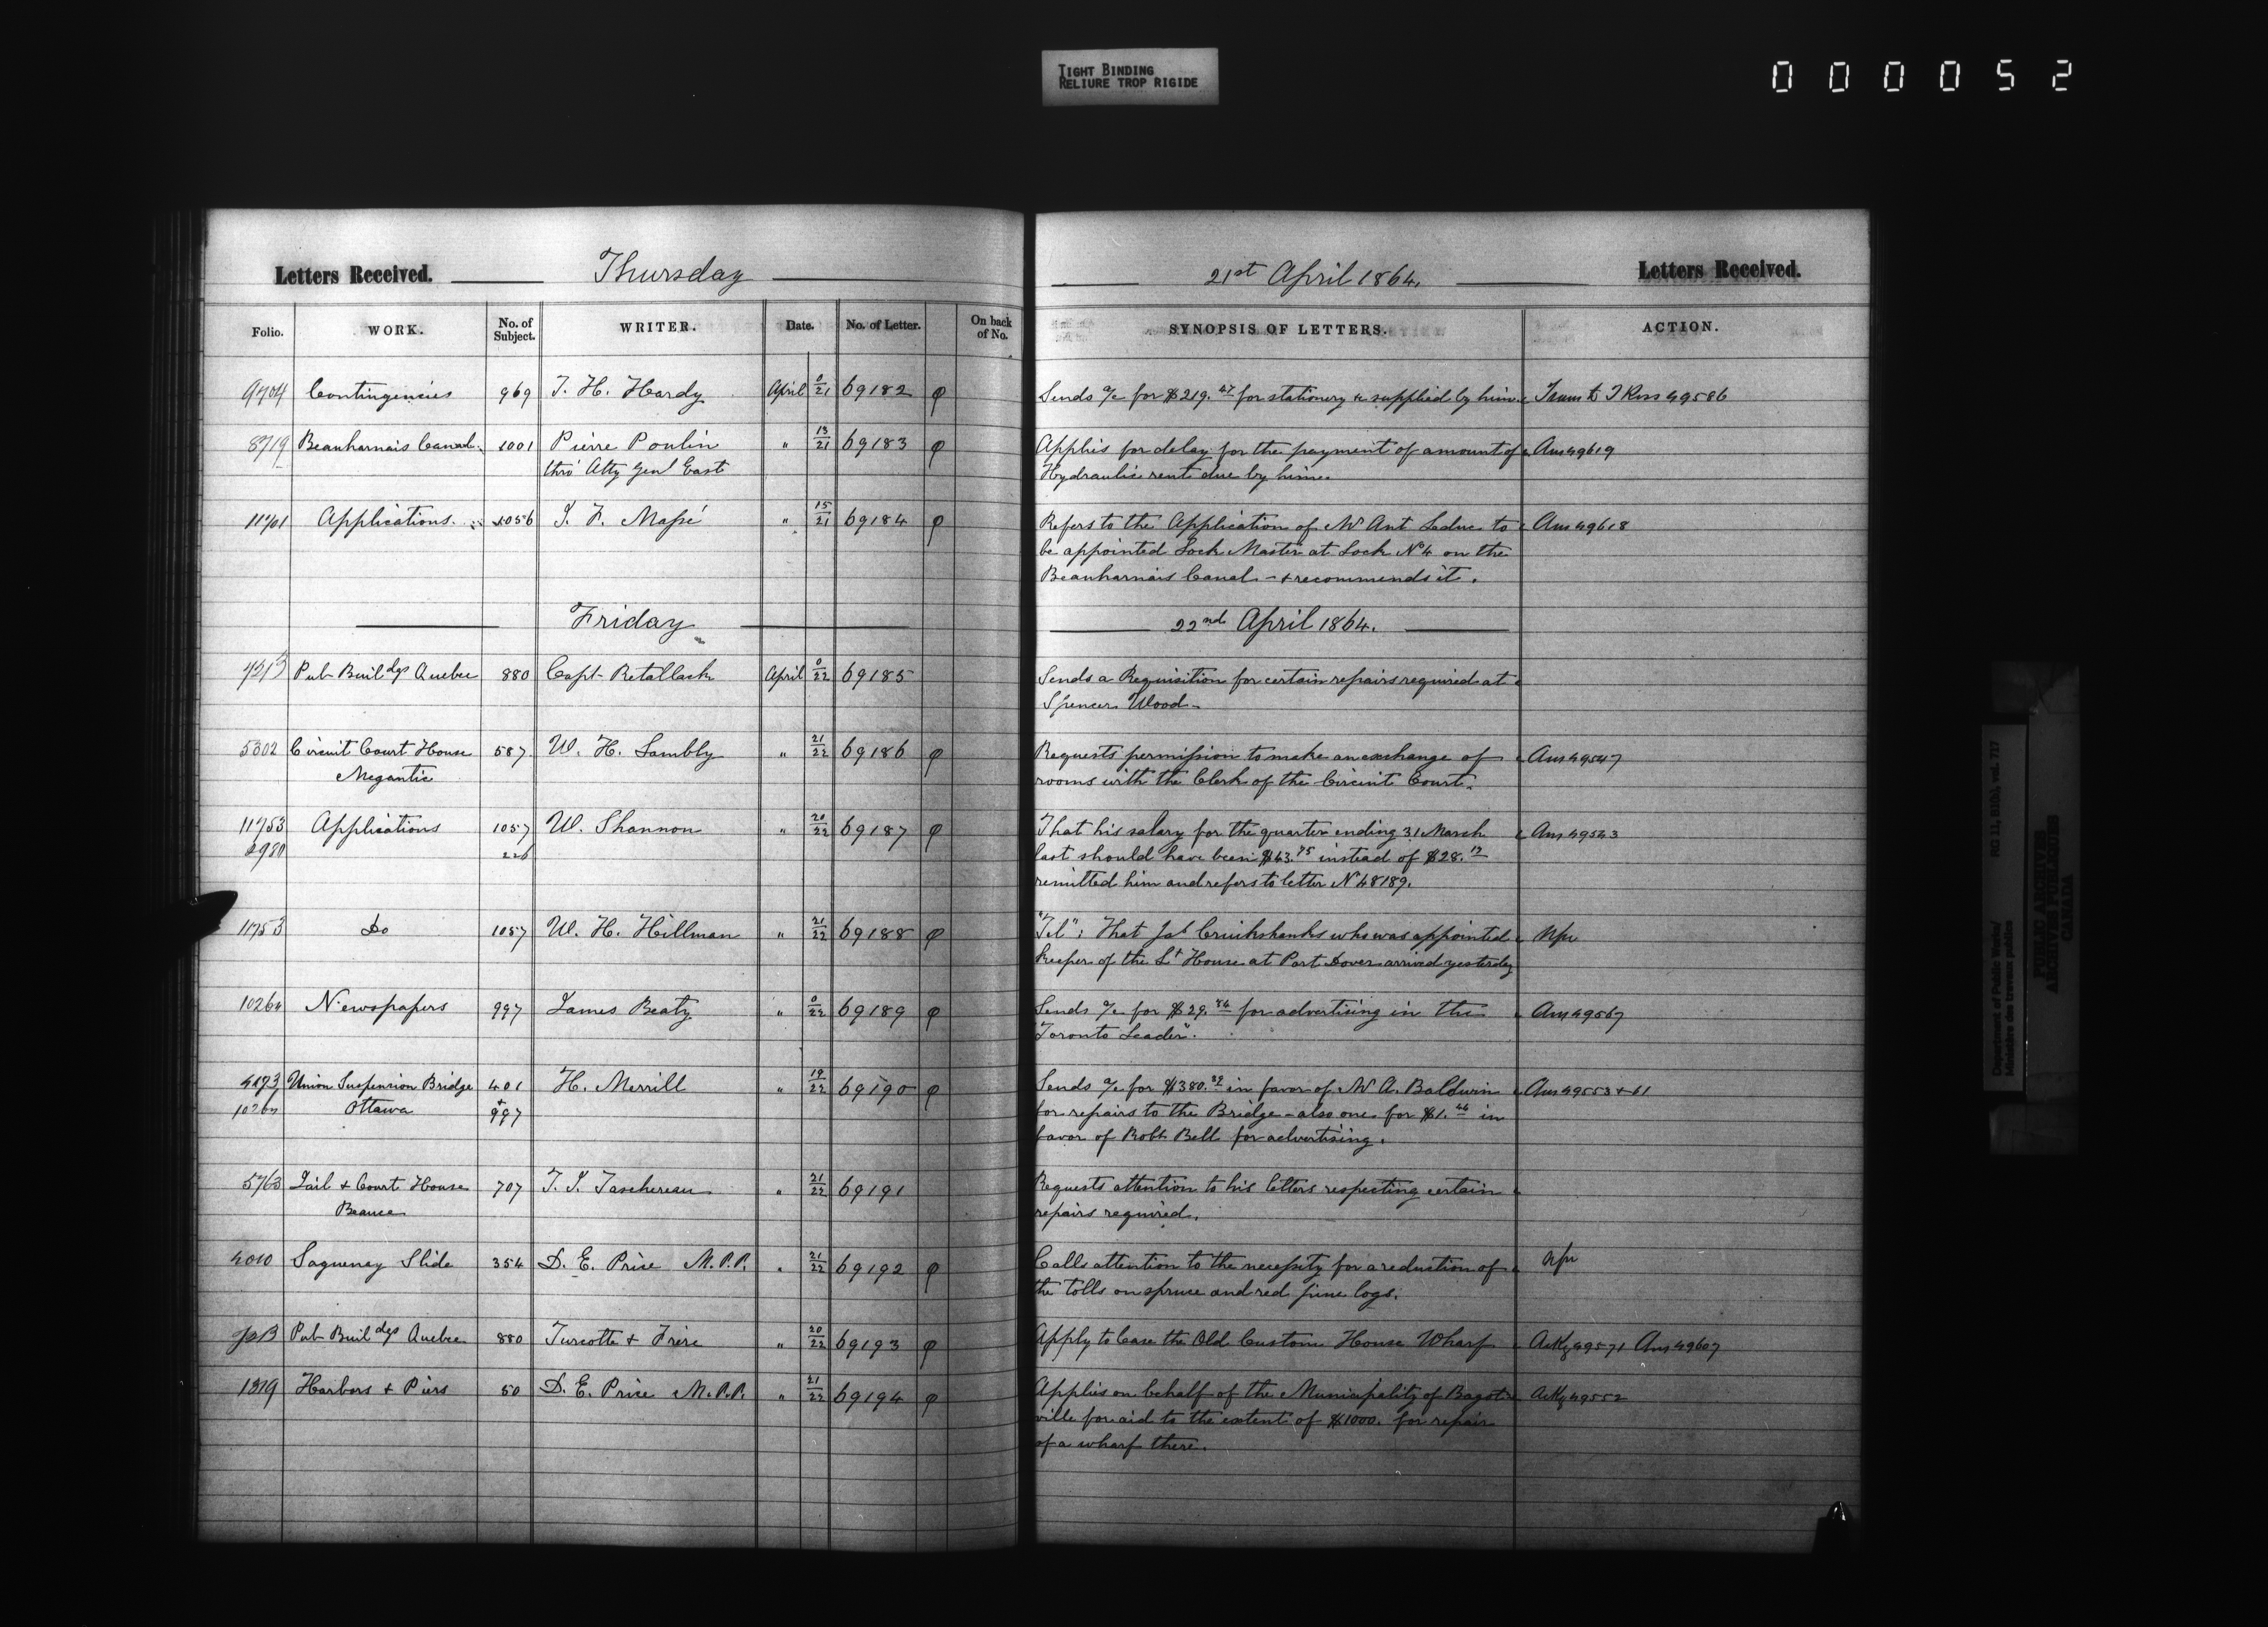 TIGHT BINDING
RELIURE TROP RIGIDE
000052
Letters Received. Thursday
21st April 1864. Letters Received.
Folio. WORK. No. of Subject. WRITER. Date. No. of Letter. On back of No.
SYNOPSIS OF LETTERS. ACTION.
9704 Contingencies 969 T. H. Hardy April 0/21 69182 φ
Sends a/c for $219.47 for stationery &c supplied by him. Transd to J Ross 49586
8719 Beauharnais Canal 1001 Pierre Poulin " 13/21 69183 φ
thro' Atty Genl East
Applies for delay for the payment of amount of Ans 49619
Hydraulic rent due by him.
11701 Applications. 1056 J. F. Massé " 15/21 69184 φ
Refers to the Application of Mr Ant Leduc to Ans 49618
be appointed Lock Master at Lock No 4 on the
Beauharnais Canal - & recommends it.
Friday
22nd April 1864.
Pub Buildgs Quebec 880 Capt Retallack April 0/22 69185
Sends a Requisition for certain repairs required at
Spencer Wood -
5302 Circuit Court House 587 W. H. Lambly " 21/22 69186 φ
Megantic
Requests permission to make an exchange of Ans 49547
rooms with the Clerk of the Circuit Court.
11753 Applications 1057 W. Shannon " 20/22 69187 φ
2980 226
That his salary for the quarter ending 31 March Ans 49543
last should have been $43.75 instead of $28.12
remitted him and refers to letter No 48189.
11753 Do 1057 W. H. Hillman " 21/22 69188 φ
"Tel": That Jas Cruikshanks who was appointed Npr
keeper of the Lt House at Port Dover arrived yesterday
10264 Newspapers 997 James Beaty " 0/22 69189 φ
Sends a/c for $29.84 for advertising in the Ans 49567
"Toronto Leader".
4193 Union Suspension Bridge 401 H. Merrill " 19/22 69190 φ
10264 Ottawa + 997
Sends a/c for $380.39 in favor of Mr A. Baldwin Ans 49553 + 61
for repairs to the Bridge - also one for $1.44 in
favor of Robt Bell for advertising.
5763 Jail & Court House 707 T. J. Taschereau " 21/22 69191
Beauce
Requests attention to his letters respecting certain
repairs required.
4010 Saguenay Slide 354 D. E. Price M.P.P. " 21/22 69192 φ
Calls attention to the necessity for a reduction of Npr
the tolls on spruce and red pine logs.
Pub Buildgs Quebec 880 Turcotte & Frère " 20/22 69193 φ
Apply to lease the Old Custom House Wharf Ackg 49571 Ans 49607
1319 Harbors & Piers 50 D. E. Price M.P.P. " 21/22 69194 φ
Applies on behalf of the Municipality of Bagot- Ackg 49552
ville for aid to the extent of $1000. for repair
of a wharf there.
Department of Public Works/
Ministère des travaux publics
RG 11, B1(b), vol. 717
PUBLIC ARCHIVES
ARCHIVES PUBLIQUES
CANADA